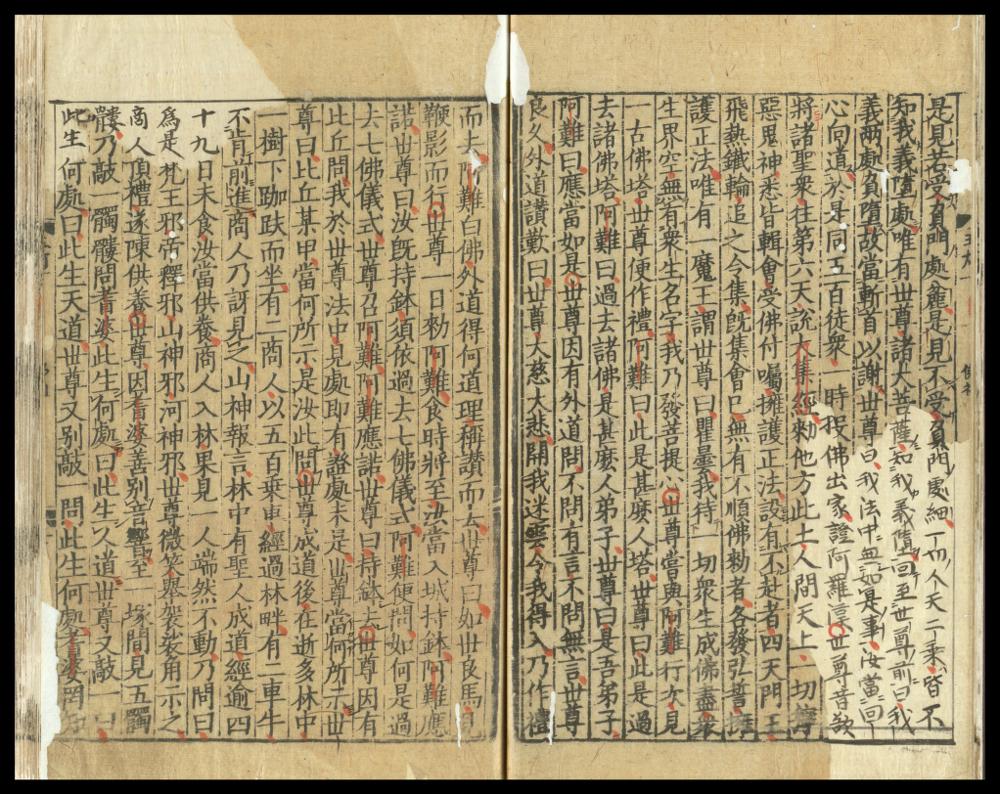 是見若受負門處麄是見不受負門處細一切人天二乘皆不
知我義墮處唯有世尊諸大菩薩知我義墮回至世尊前曰我
義兩處負墮故當斬首以謝世尊曰我法中無如是事汝當回
心向道於是同五百徒衆時投佛出家證阿羅漢世尊昔欲
將諸聖衆往第六天說大集經勑他方此土人間天上一切獰
惡鬼神悉皆輯會受佛付囑擁護正法設有不赴者四天門王
飛熱鐵輪追之令集旣集會已無有不順佛勑者各發弘誓擁
護正法唯有一魔王謂世尊曰瞿曇我待一切衆生成佛盡衆
生界空無有衆生名字我乃發菩提心世尊嘗與阿難行次見
一古佛塔世尊便作禮阿難曰此是甚麽人塔世尊曰此是過
去諸佛塔阿難曰過去諸佛是甚麽人弟子世尊曰是吾弟子
阿難曰應當如是世尊因有外道問不問有言不問無言世尊
良久外道讚歎曰世尊大慈大悲開我迷雲令我得入乃作禮
而去阿難曰佛外道得何道理稱讚而去世尊曰如世良馬見
鞭影而行世尊一日勑阿難食時將至汝當入城持鉢阿難應
諾世尊曰汝旣持鉢須依過去七佛儀式阿難便問如何是過
去七佛儀式世尊召阿難阿難應諾世尊曰持鉢去世尊因有
比丘問我於世尊法中見處即有證處未是世尊當何所示世
尊曰比丘某甲當何所示是汝此問世尊成道後在逝多林中
一樹下跏趺而坐有二商人以五百乘車經過林畔有二車牛
不肯前進商人乃訝見之山神報言林中有聖人成道經逾四
十九日未食汝當供養商人入林果見一人端然不動乃問曰
爲是梵王邪帝釋邪山神邪河神邪世尊微笑舉袈裟角示之
商人頂禮遂陳供養世尊因耆婆善別音響至一塚間見五髑
髏乃敲一髑髏問耆婆此生何處曰此生人道世尊又敲一曰
此生何處曰此生天道世尊又别敲一問此生何處耆婆罔知